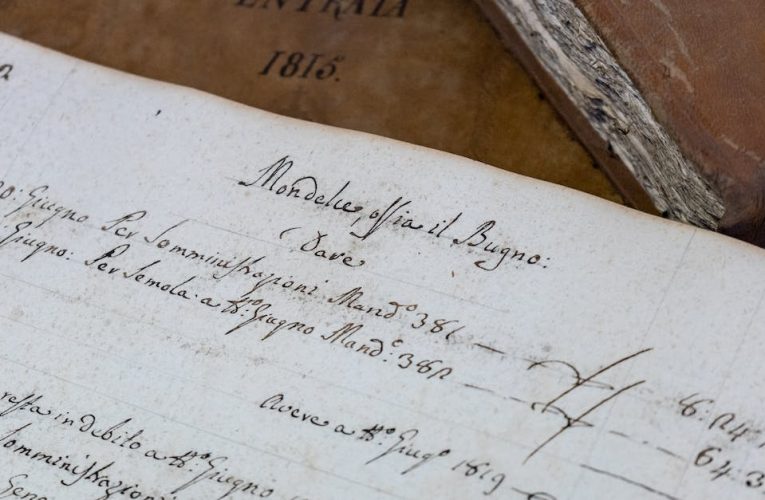 ENTRATA
1815.
Mondelce, ossia il Bugno:
Dare
Giugno Per Somministrazioni Mand.º 381
Giugno: Per Semola a tt.º Giugno Mand.º 382
64:3
Avere a tt.º Giug.º 1819
resta in debito a tt.º Giugno
Somministrazioni